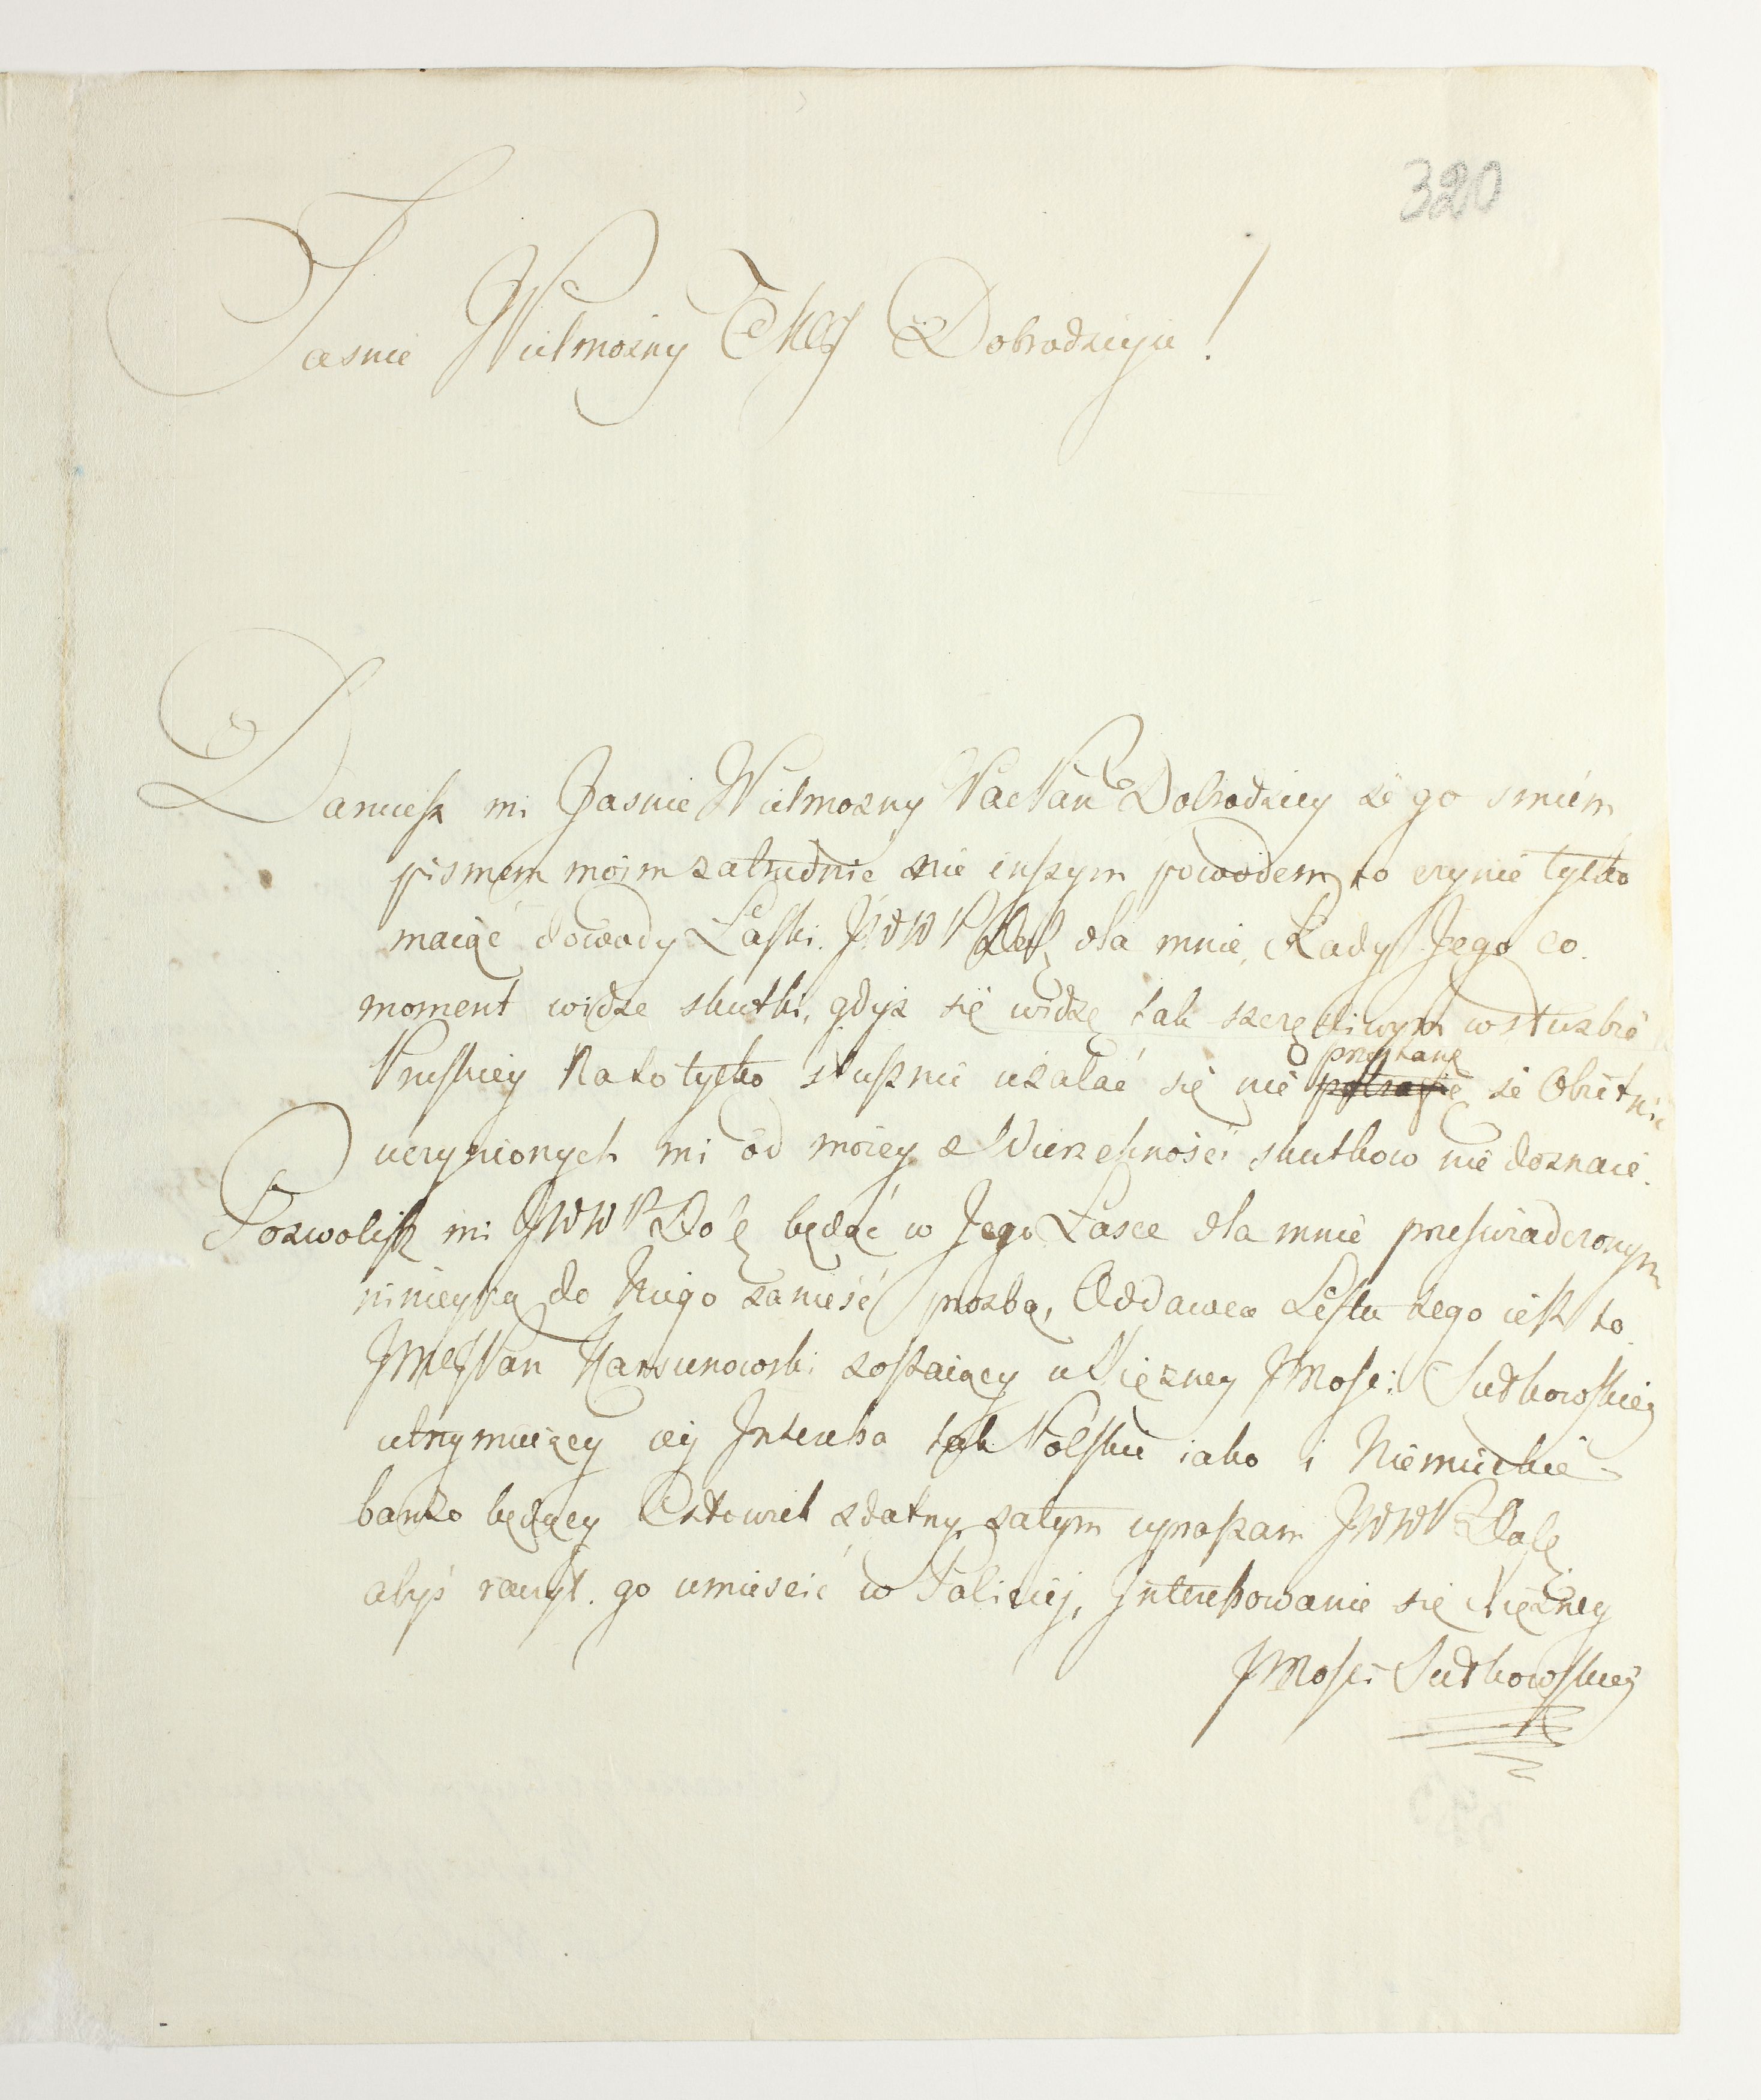 320
Jasnie Wielmozny Dobrodzieyu!
Daruiesz mi Jasnie Wielmozny WacPan Dobrodziey ze go smiém
pismem moim zatrudnic nie inszym powodem to czynie tylko
maiąc dowody Łaski JWWP dla mnie, Rady Jego co
moment widze skutki, gdyż się widzę tak szczęsliwym w służbie
Pruskiey Na to tylko słusznie użalać się nie przestanę potrafię że Obietnic
uczynionych mi od moiey Zwierzchności skutkow nie doznaie.
Pozwolisz mi JWWPDo będąc w Jego Łasce dla mnie przeswiadczonym
ninieyszą do Niego zanieść prozbą, Oddawca Listu tego iest to
JMCPan zostaiący u Xiężney JMosci Sułkowskiey
utrzymuiący iey Interessa tak Polskie iako i Niemieckie
bardzo będący Człowiek zdatny, zatym upraszam JWWPDo
abyś raczył go umiescić w Policiej, Interessowanie się Xiężney
JMosci Sułkowskiey